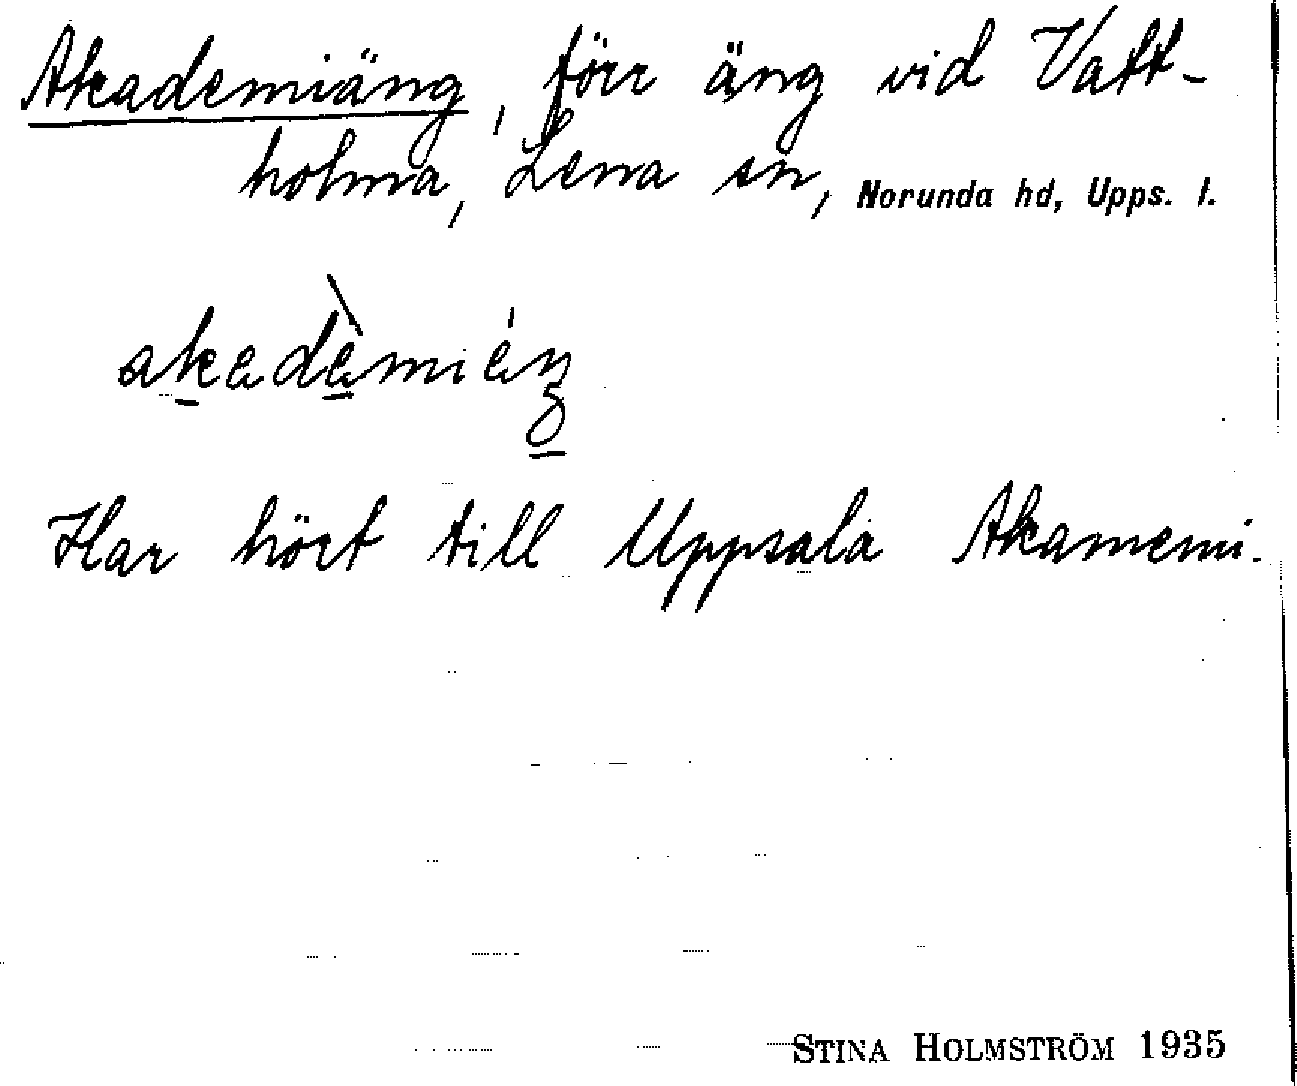 Akademiäng, förr äng vid Vatt-
holma, Lena sn, Norunda hd, Upps. l.
akadèmiéŋ
Har hört till Uppsala Akamemi.
STINA HOLMSTRÖM 1935